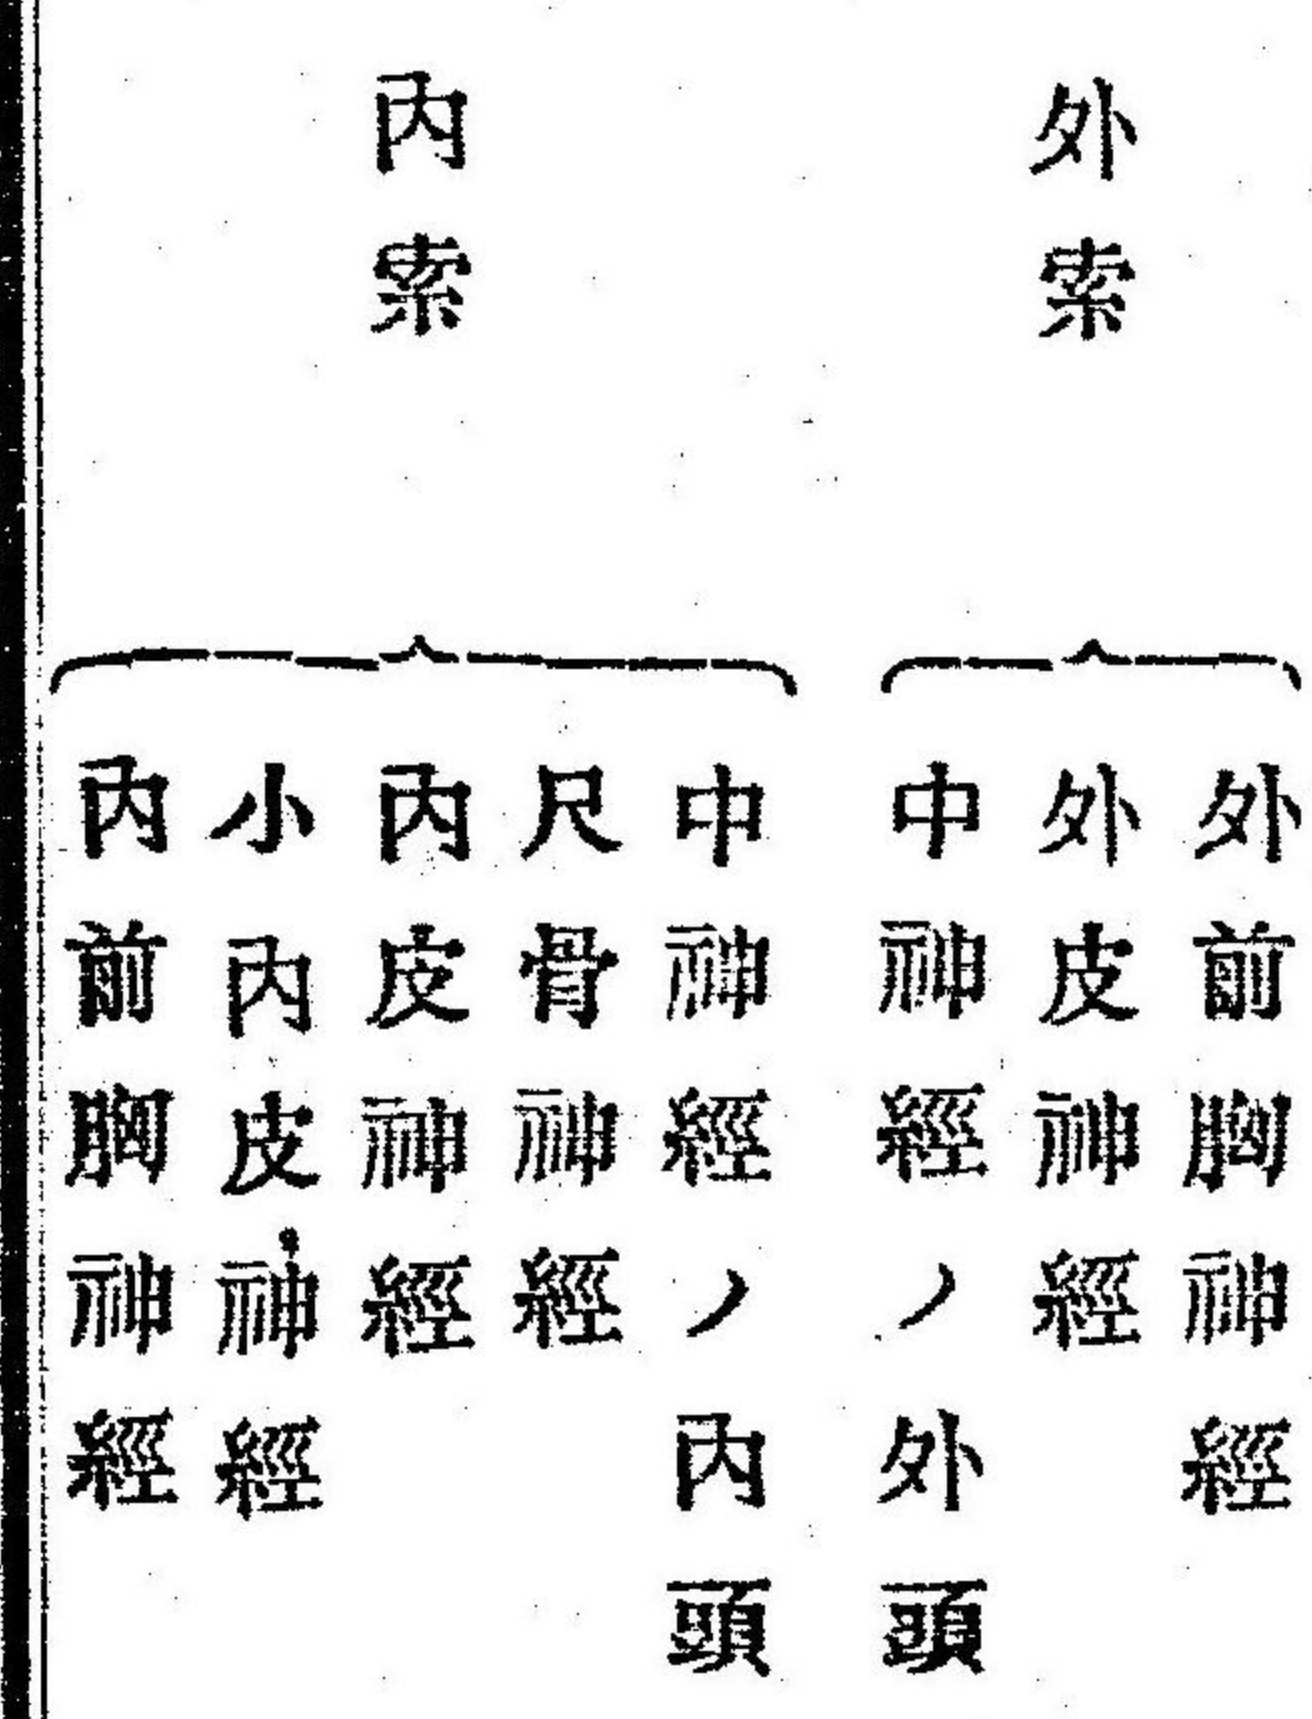 外索
外前胸神經
外皮神經
中神經ノ外頭
內索
中神經ノ內頭
尺骨神經
內皮神經
小內皮神經
內前胸神經